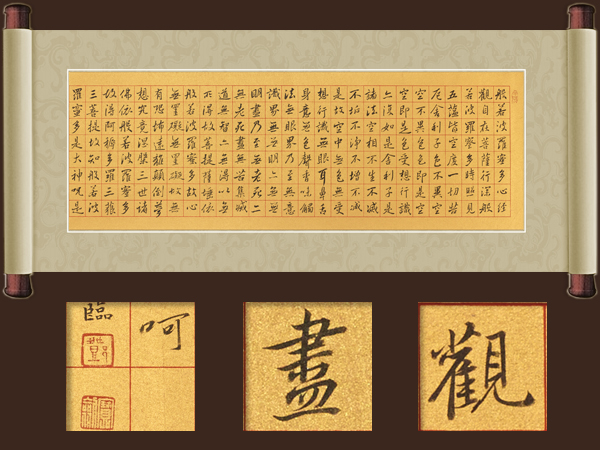 般若波羅蜜多心經
觀自在菩薩行深般
若波羅蜜多時照見
五蘊皆空度一切苦
厄舍利子色不異空
空不異色色即是空
空即是色受想行識
亦復如是舍利子是
諸法空相不生不滅
不垢不淨不增不減
是故空中無色無受
想行識無眼耳鼻舌
身意無色聲香味觸
法無眼界乃至無意
識界無無明亦無無
明盡乃至無老死亦
無老死盡無苦集滅
道無智亦無得以無
所得故菩提薩埵依
般若波羅蜜多故心
無罣礙無罣礙故無
有恐怖遠離顛倒夢
想究竟涅槃三世諸
佛依般若波羅蜜多
故得阿耨多羅三藐
三菩提故知般若波
羅蜜多是大神咒是
呵
臨
盡
觀